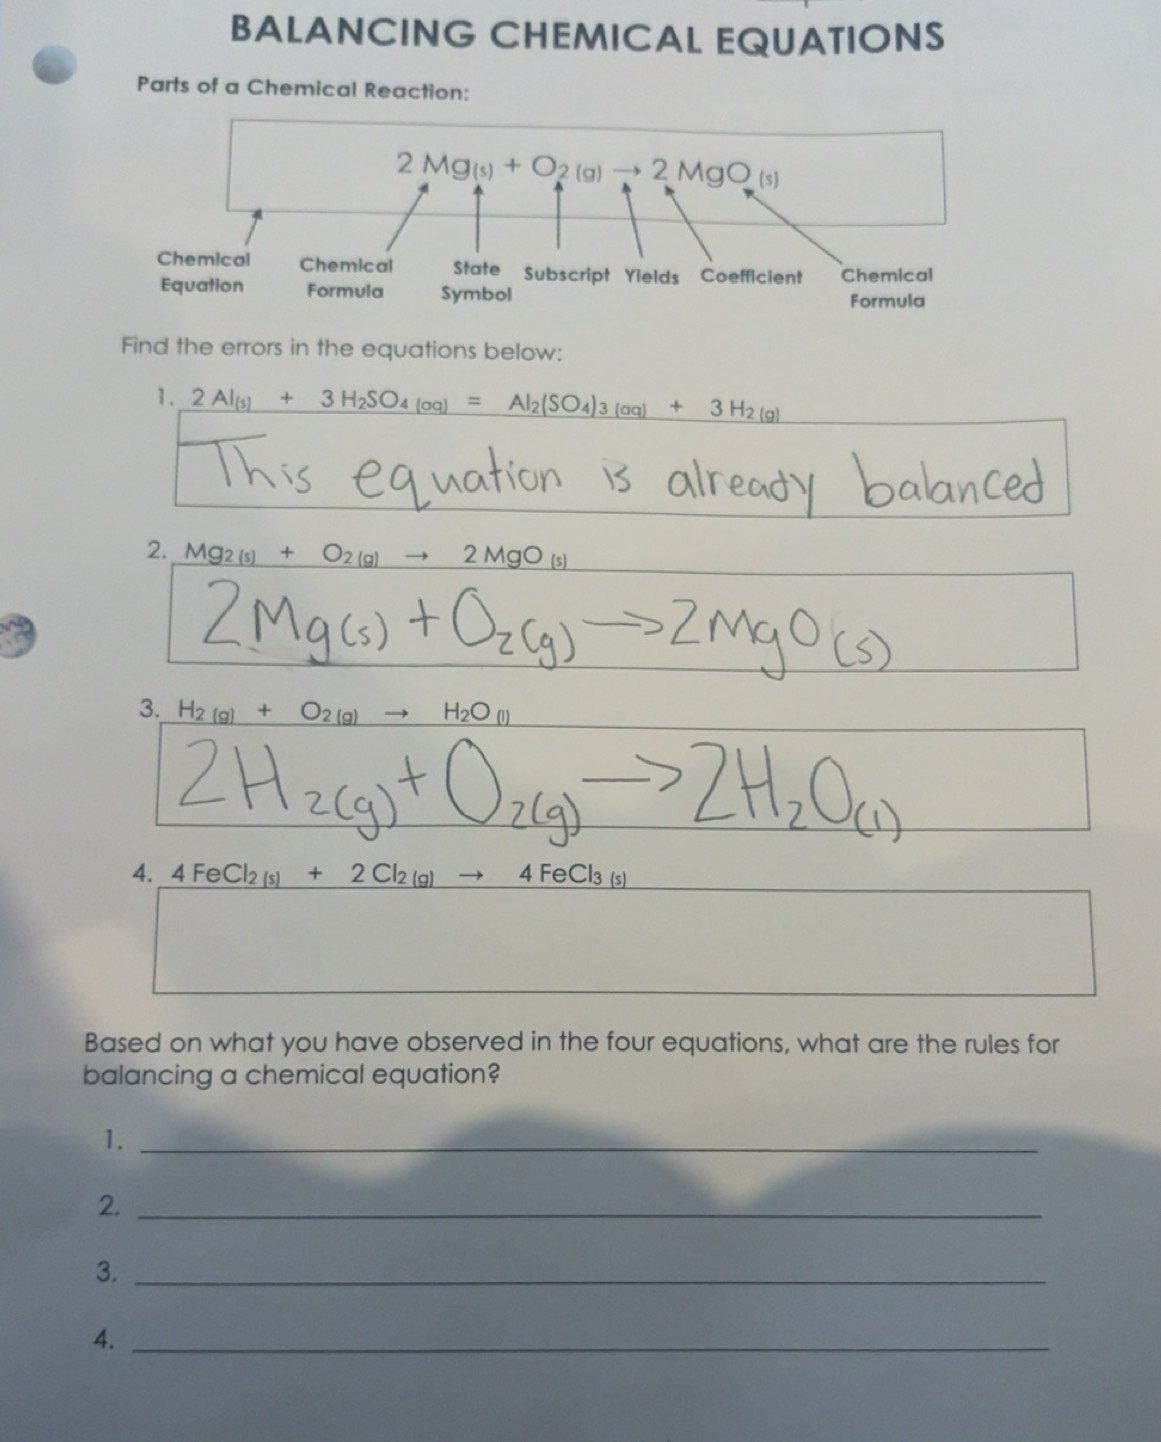 BALANCING CHEMICAL EQUATIONS
Parts of a Chemical Reaction:
2 Mg(s) + O2 (g) → 2 MgO (s)
Chemical Equation
Chemical Formula
State Symbol
Subscript
Yields
Coefficient
Chemical Formula
Find the errors in the equations below:
1. 2 Al(s) + 3 H2SO4 (aq) = Al2(SO4)3 (aq) + 3 H2 (g)
This equation is already balanced
2. Mg2 (s) + O2 (g) → 2 MgO (s)
2Mg(s) + O2(g) → 2MgO(s)
3. H2 (g) + O2 (g) → H2O (l)
2H2(g) + O2(g) → 2H2O(l)
4. 4 FeCl2 (s) + 2 Cl2 (g) → 4 FeCl3 (s)
Based on what you have observed in the four equations, what are the rules for
balancing a chemical equation?
1.
2.
3.
4.